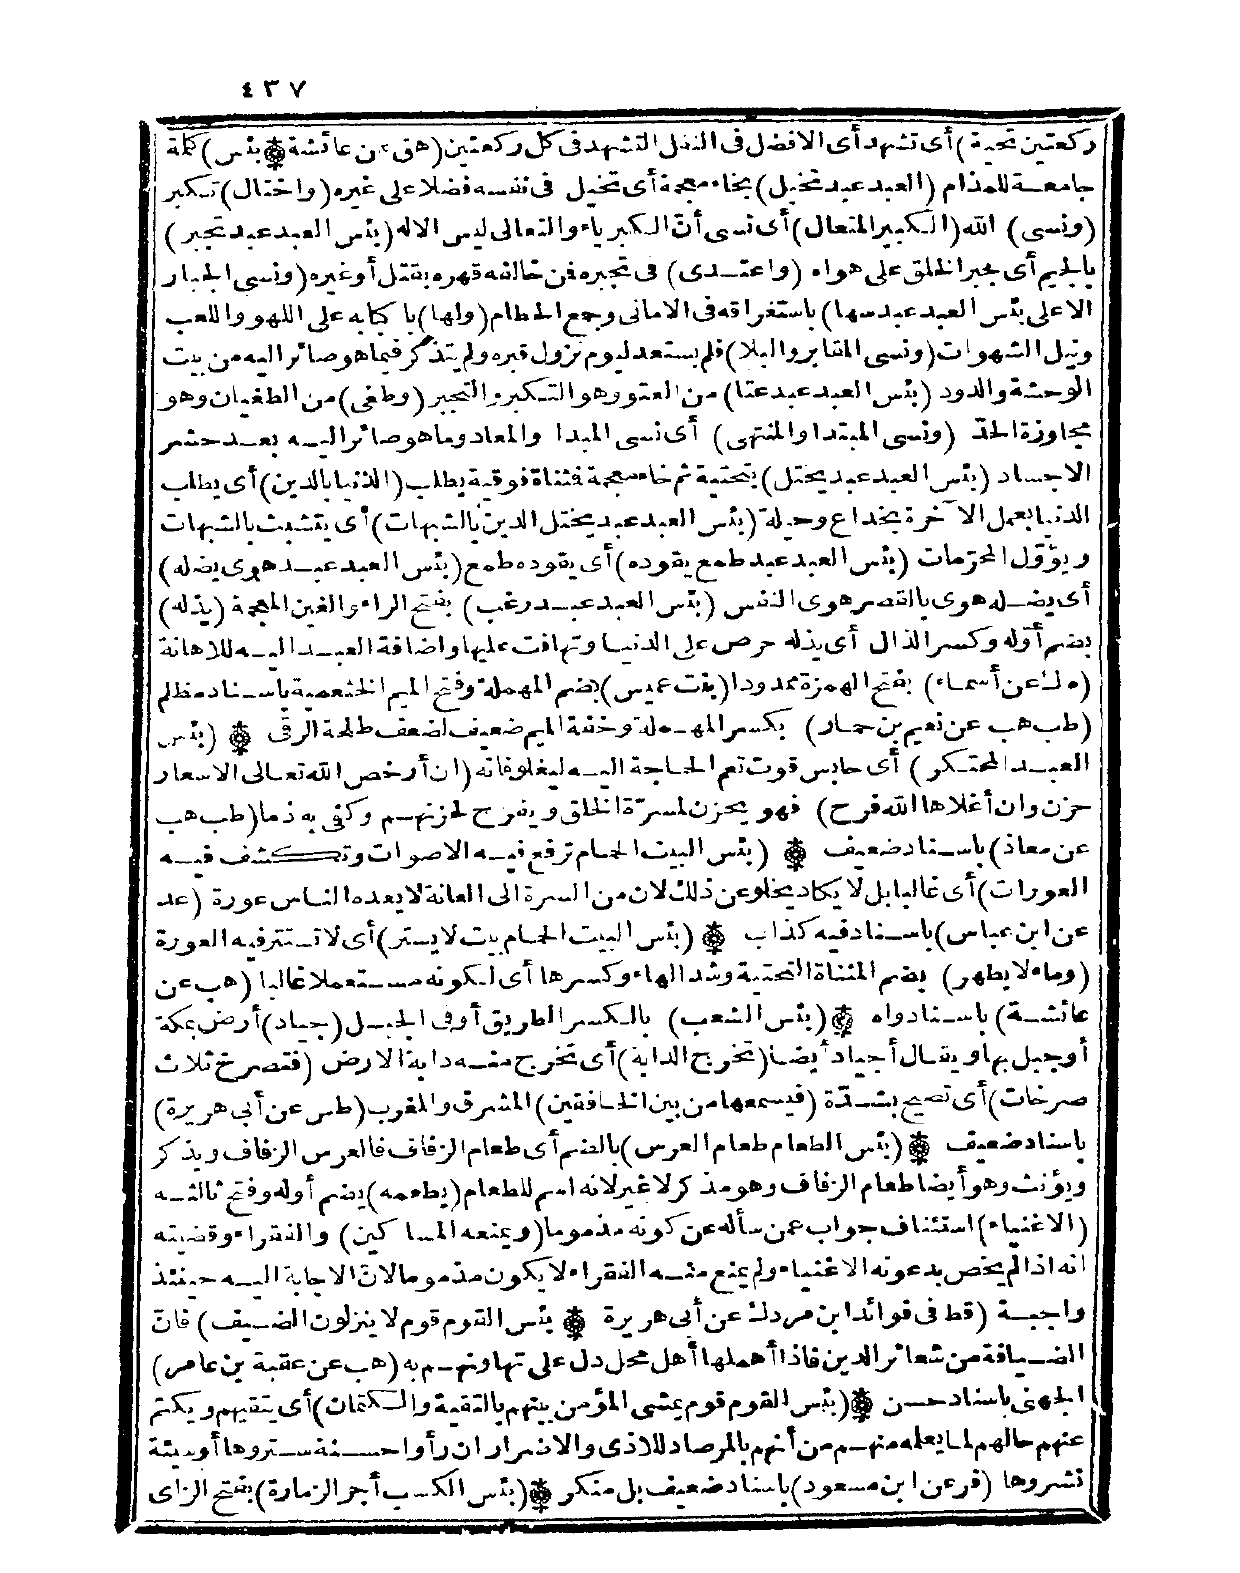 ٤٣٧
ركعتين تحية) أى تشهد أى الافضل فى النفل التشهد فى كل ركعتين (هق عن عائشة ۞ بئس) كلمة
جامعة للمذام (العبد عبد تخيل) بخاء معجمة أى تخيل فى نفسه فضلا على غيره (واختال) تكبر
(ونسى) الله (الكبير المتعال) أى نسى أنّ الكبرياء والتعالى ليس الا له (بئس العبد عبد تجبر)
بالجيم أى جبر الخلق على هواه (واعتدى) فى تجبره فمن خالفه قهره بقتل أو غيره (ونسى الجبار
الاعلى بئس العبد عبد سها) باستغراقه فى الامانى وجمع الحطام (ولها) باكبابه على اللهو واللعب
ونيل الشهوات (ونسى المقابر والبلا) فلم يستعد ليوم نزول قبره ولم يتذكر فيما هو صائر اليه من بيت
الوحشة والدود (بئس العبد عبد عتا) من العتو وهو التكبر والتجبر (وطغى) من الطغيان وهو
مجاوزة الحدّ (ونسى المبتدا والمنتهى) أى نسى المبدا والمعاد وما هو صائر اليه بعد حشر
الاجساد (بئس العبد عبد يختل) بتحتية ثم خاء معجمة فمثناة فوقية يطلب (الدنيا بالدين) أى يطلب
الدنيا بعمل الآخرة بخداع وحيلة (بئس العبد عبد يختل الدين بالشبهات) أى يتشبث بالشبهات
ويؤوّل المحرّمات (بئس العبد عبد طمع يقوده) أى يقوده طمع (بئس العبد عبد هوى يضله)
أى يضله هوى بالقصر هوى النفس (بئس العبد عبد رغب) بفتح الراء والغين المعجمة (يذله)
بضم أوّله وكسر الذال أى يذله حرص على الدنيا وتهافت عليها واضافة العبد اليه للاهانة
(ت ك عن أسماء) بفتح الهمزة ممدودا (بنت عميس) بضم المهملة وفتح الميم الخثعمية باسناد مظلم
(طب هب عن نعيم بن حمار) بكسر المهملة وخفة الميم ضعيف لضعف طلحة الرقى ۞ (بئس
العبد المحتكر) أى حابس قوت تعم الحاجة اليه ليغلو فانه (ان أرخص الله تعالى الاسعار
حزن وان أغلاها الله فرح) فهو يحزن لمسرّة الخلق ويفرح لحزنهم وكفى به ذما (طب هب
عن معاذ) باسناد ضعيف ۞ (بئس البيت الحمام ترفع فيه الاصوات وتكشف فيه
العورات) أى غالبا بل لا يكاد يخلو عن ذلك لان من السرة الى العانة لا يعده الناس عورة (عد
عن ابن عباس) باسناد فيه كذاب ۞ (بئس البيت الحمام بيت لا يستر) أى لا تستتر فيه العورة
(وماء لا يطهر) بضم المثناة التحتية وشد الهاء وكسرها أى لكونه مستعملا غالبا (هب عن
عائشة) باسناد واه ۞ (بئس الشعب) بالكسر الطريق أو فى الجبل (جياد) أرض بمكة
أو جبل بها ويقال أجياد أيضا (تخرج الدابة) أى تخرج منه دابة الارض (فتصرخ ثلاث
صرخات) أى تصيح بشدّة (فيسمعها من بين الخافقين) المشرق والمغرب (طس عن أبى هريرة)
باسناد ضعيف ۞ (بئس الطعام طعام العرس) بالضم أى طعام الزفاف فالعرس الزفاف ويذكر
ويؤنث وهو أيضا طعام الزفاف وهو مذكر لا غير لانه اسم للطعام (يطعمه) بضم أوله وفتح ثالثه
(الاغنياء) استئناف جواب عمن سأله عن كونه مذموما (ويمنعه المساكين) والفقراء وقضيته
انه اذا لم يخص بدعوته الاغنياء ولم يمنع منه الفقراء لا يكون مذموما لانّ الاجابة اليه حينئذ
واجبة (قط فى فوائد ابن مردك عن أبى هريرة ۞ بئس القوم قوم لا ينزلون الضيف) فانّ
الضيافة من شعائر الدين فاذا أهملها أهل محل دل على تهاونهم به (هب عن عقبة بن عامر)
الجهنى باسناد حسن ۞ (بئس القوم قوم يمشى المؤمن بينهم بالتقية والكتمان) أى يتقيهم ويكتم
عنهم حاله لما يعلمه منهم من أنهم بالمرصاد للاذى والاضرار ان رأوا حسنة ستروها أو سيئة
نشروها (فر عن ابن مسعود) باسناد ضعيف بل منكر ۞ (بئس الكسب أجر الزمارة) بفتح الزاى